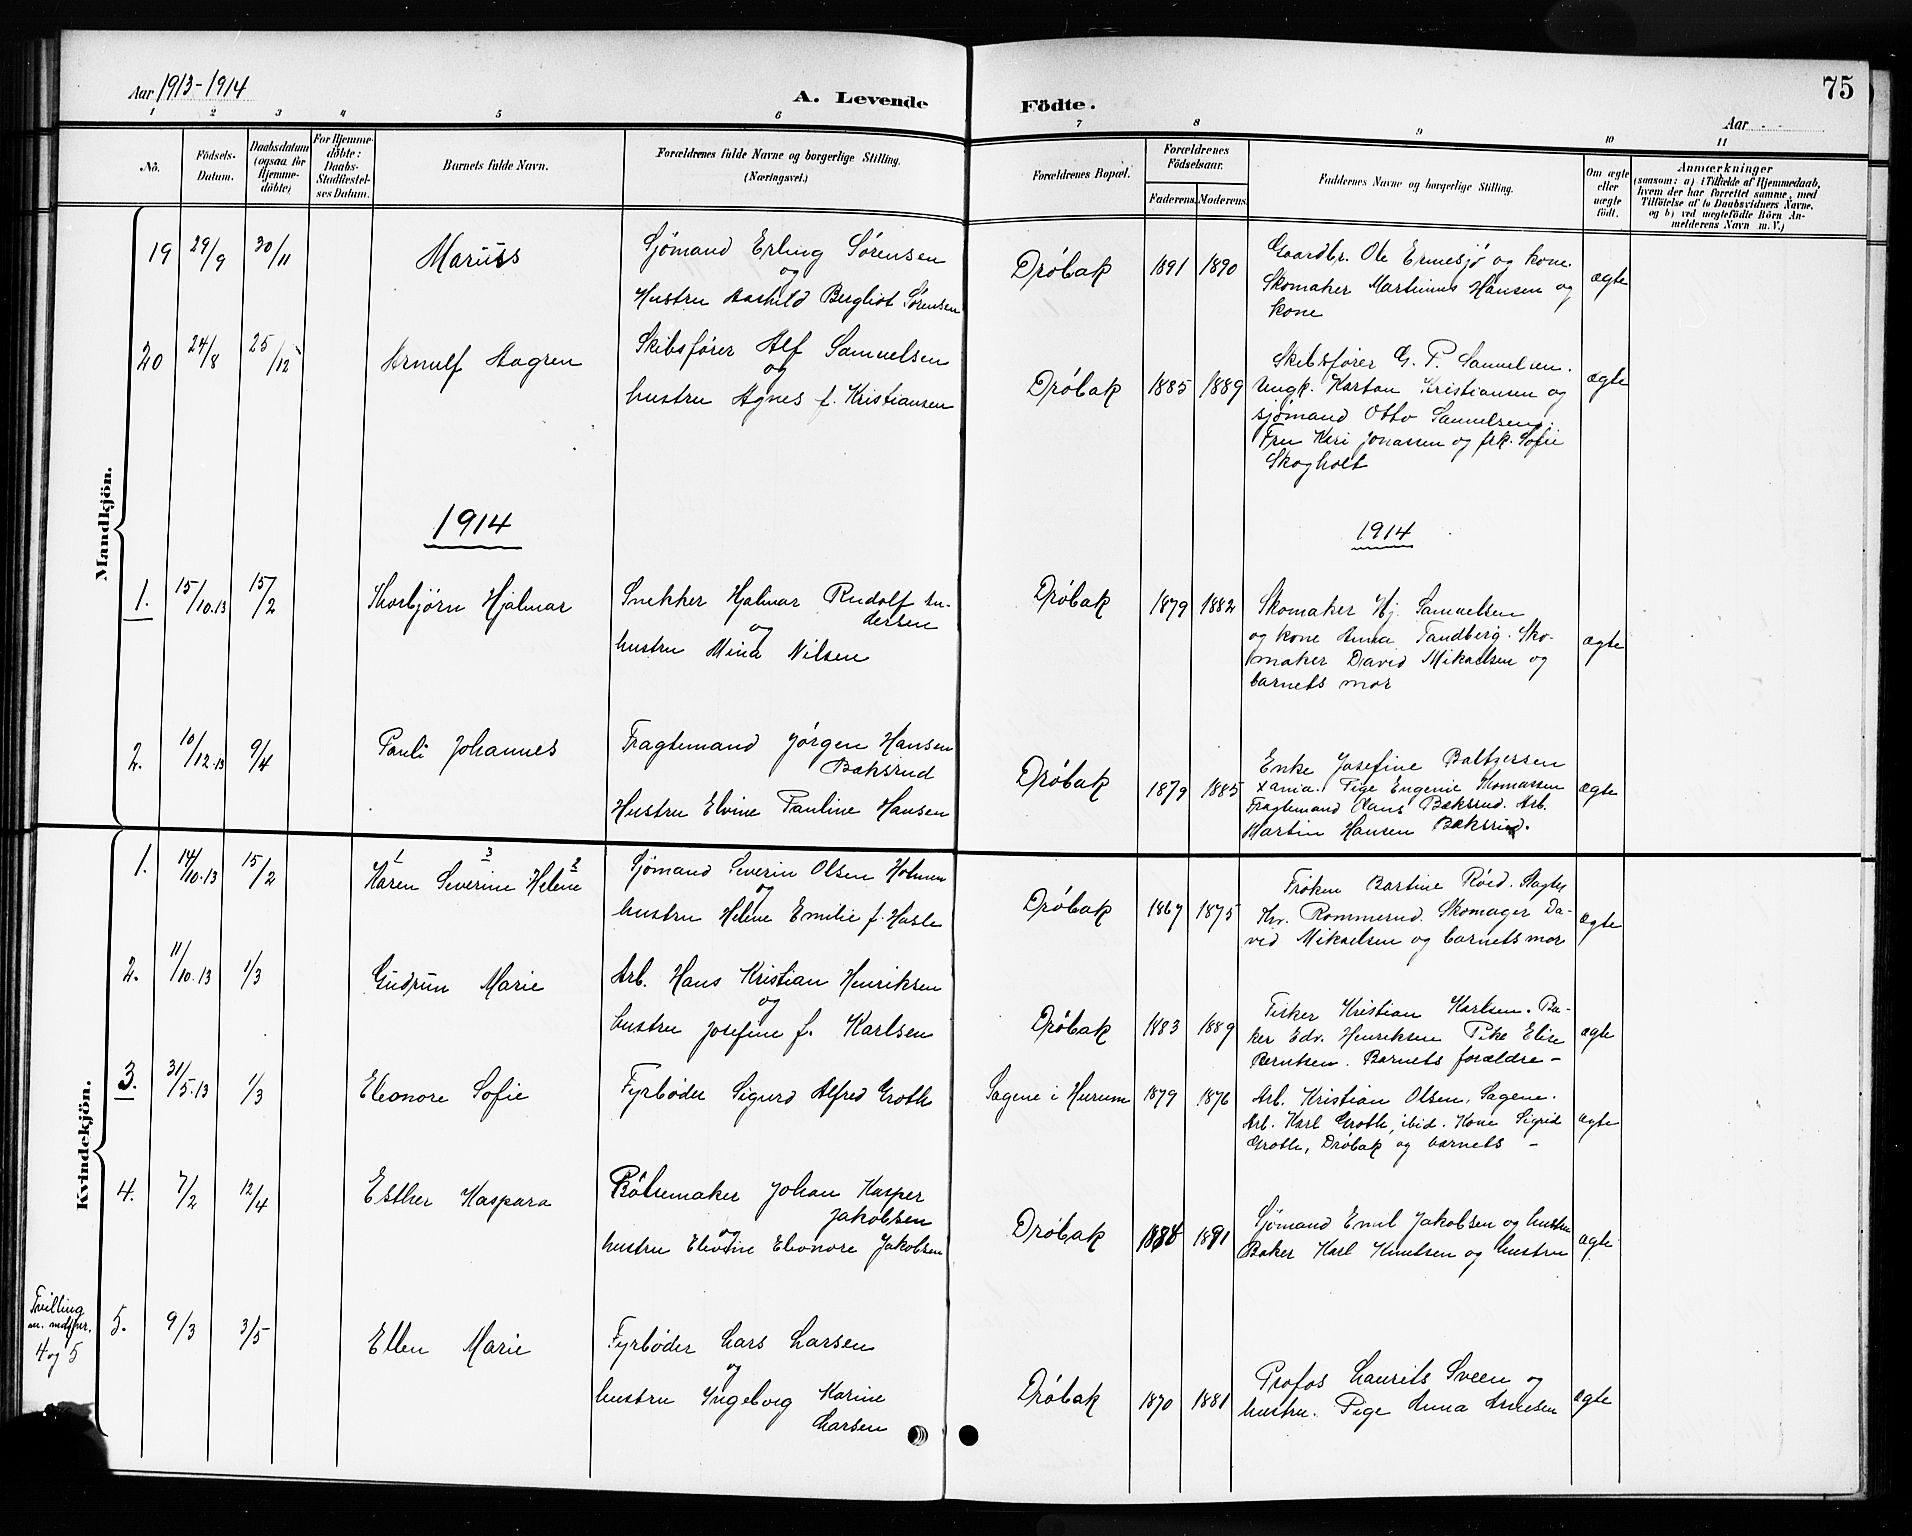 75
Aar 1913-1914
A. Levende Födte.
Aar
1 2 3 4 5 6 7 8 9 10 11
No.
Födsels-
Datum.
Daabsdatum
(ogsaa for
Hjemme-
döbte)
For Hjemme-
döbte:
Daabs-
Stadfæstel-
ses Datum.
Barnets fulde Navn.
Forældrenes fulde Navne og borgerlige Stilling.
(Næringsvei.)
Forældrenes Bopæl.
Forældrenes
Födselsaar.
Faderens. Moderens.
Faddernes Navne og borgerlige Stilling.
Om ægte
eller
uægte
født.
Anmærkninger
(saasom: a) i Tilfælde af Hjemmedaab,
hvem der har forrettet samme, med
Tilföielse af to Daabsvidners Navne,
og b) ved uægtefödte Börn An-
melderens Navn m. V.)
Mandkjön.
19 29/9 30/11 Mariuss
Sjømand Erling Sørensen
og
Hustru Aashild Bergliot Sørensen
Drøbak 1891 1890
Gaardbr. Ole Ermesjø og kone.
Skomaker Martinius Hansen og
kone
ægte
20 24/8 25/12 Arnulf Aagren
Skibsfører Alf Samuelsen
og
hustru Agnes f. Kristiansen
Drøbak 1885 1889
Skibsfører G. P. Samuelsen.
Ungk. Karton Kristiansen og
sjømand Otto Samuelsen.
Fru Kari Jonassen og frk. Sofie
Skogholt
ægte
1914
1914
1. 15/10.13 15/2 Thorbjørn Hjalmar
Snekker Hjalmar Rudolf An-
dersen
og
hustru Mina Nilsen
Drøbak 1879 1882
Skomaker Hj. Samuelsen
og kone Anna Tandberg. Sko-
maker David Mikaelsen og
barnets mor
ægte
2. 10/12.13 9/4 Pauli Johannes
Fragtemand Jørgen Hansen
Bæksrud
Hustru Elvine Pauline Hansen
Drøbak 1879 1885
Enke Josefine Baltzersen
Xania. Pige Eugenie Thomassen
Fragtemand Claus Bæksrud. Arb.
Martin Hansen Bæksrud.
ægte
Kvindekjön.
1. 14/10.13 15/2
1 3 2
Karen Severine Helene
Sjømand Severin Olsen Holmen
og
hustru Helene Emilie f. Hasle
Drøbak 1867 1875
Frøken Bartine Røed. Slagter
Thv. Rommerud. Skomager Da-
vid Mikaelsen og barnets mor
ægte
2. 11/10.13 1/3 Gudrun Marie
Arb. Hans Kristian Henriksen
og
hustru Josefine f. Karlsen
Drøbak 1883 1889
Fisker Kristian Karlsen. Ba-
ker Edv. Henriksen Pike Elise
Berntsen. Barnets forældre –
ægte
3. 31/5.13 1/3 Eleonore Sofie
Fyrbøder Sigurd Alfred Groth
Sagene i Hurum 1879 1876
Arb. Kristian Olsen, Sagene.
Arb. Karl Groth, ibid. Kone Sigrid
Groth, Drøbak og barnets –
ægte
4. 7/2 12/4 Esther Kaspara
Pølsemaker Johan Kasper
Jakobsen
og
hustru Elevine Eleonore Jakobsen
Drøbak 1888 1891
Sjømand Emil Jakobsen og hustru
Baker Karl Knutsen og hustru
ægte
Tvilling
4 og 5
5. 9/3 3/5 Ellen Marie
Fyrbøder Lars Larsen
og
hustru Ingeborg Karine
Larsen
Drøbak 1870 1881
Profos Laurits Sveen og
hustru. Pige Anna Arnesen
ægte